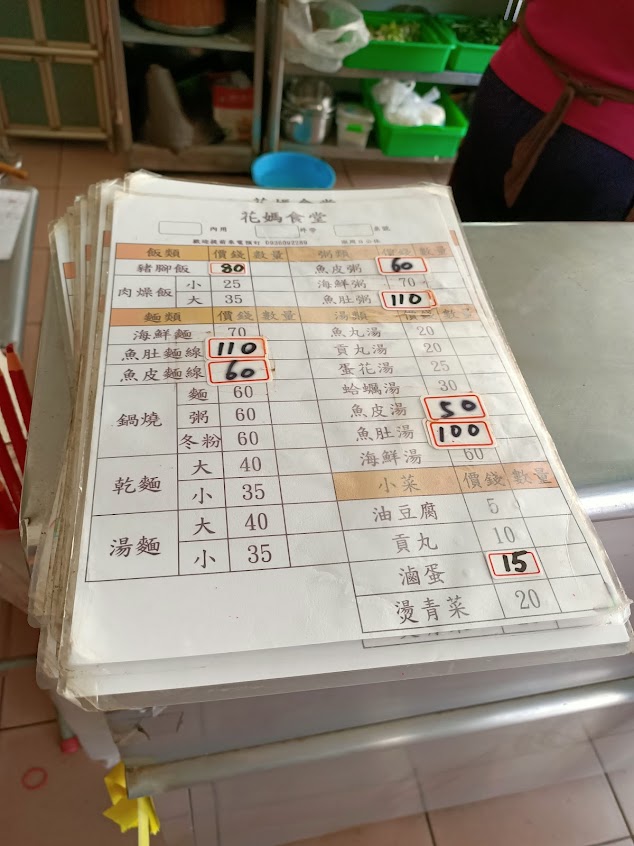 花媽食堂
內用 外帶 桌號
歡迎提前來電預訂
飯類 價錢 數量
豬腳飯 80
肉燥飯 小 25
大 35
麵類 價錢 數量
海鮮麵 70
魚肚麵線 110
魚皮麵線 60
鍋燒 麵 60
粥 60
冬粉 60
乾麵 大 40
小 35
湯麵 大 40
小 35
粥類 價錢 數量
魚皮粥 60
海鮮粥 70
魚肚粥 110
湯類 價錢 數量
魚丸湯 20
貢丸湯 20
蛋花湯 25
蛤蠣湯 30
魚皮湯 50
魚肚湯 100
海鮮湯 60
小菜 價錢 數量
油豆腐 5
貢丸 10
滷蛋 15
燙青菜 20